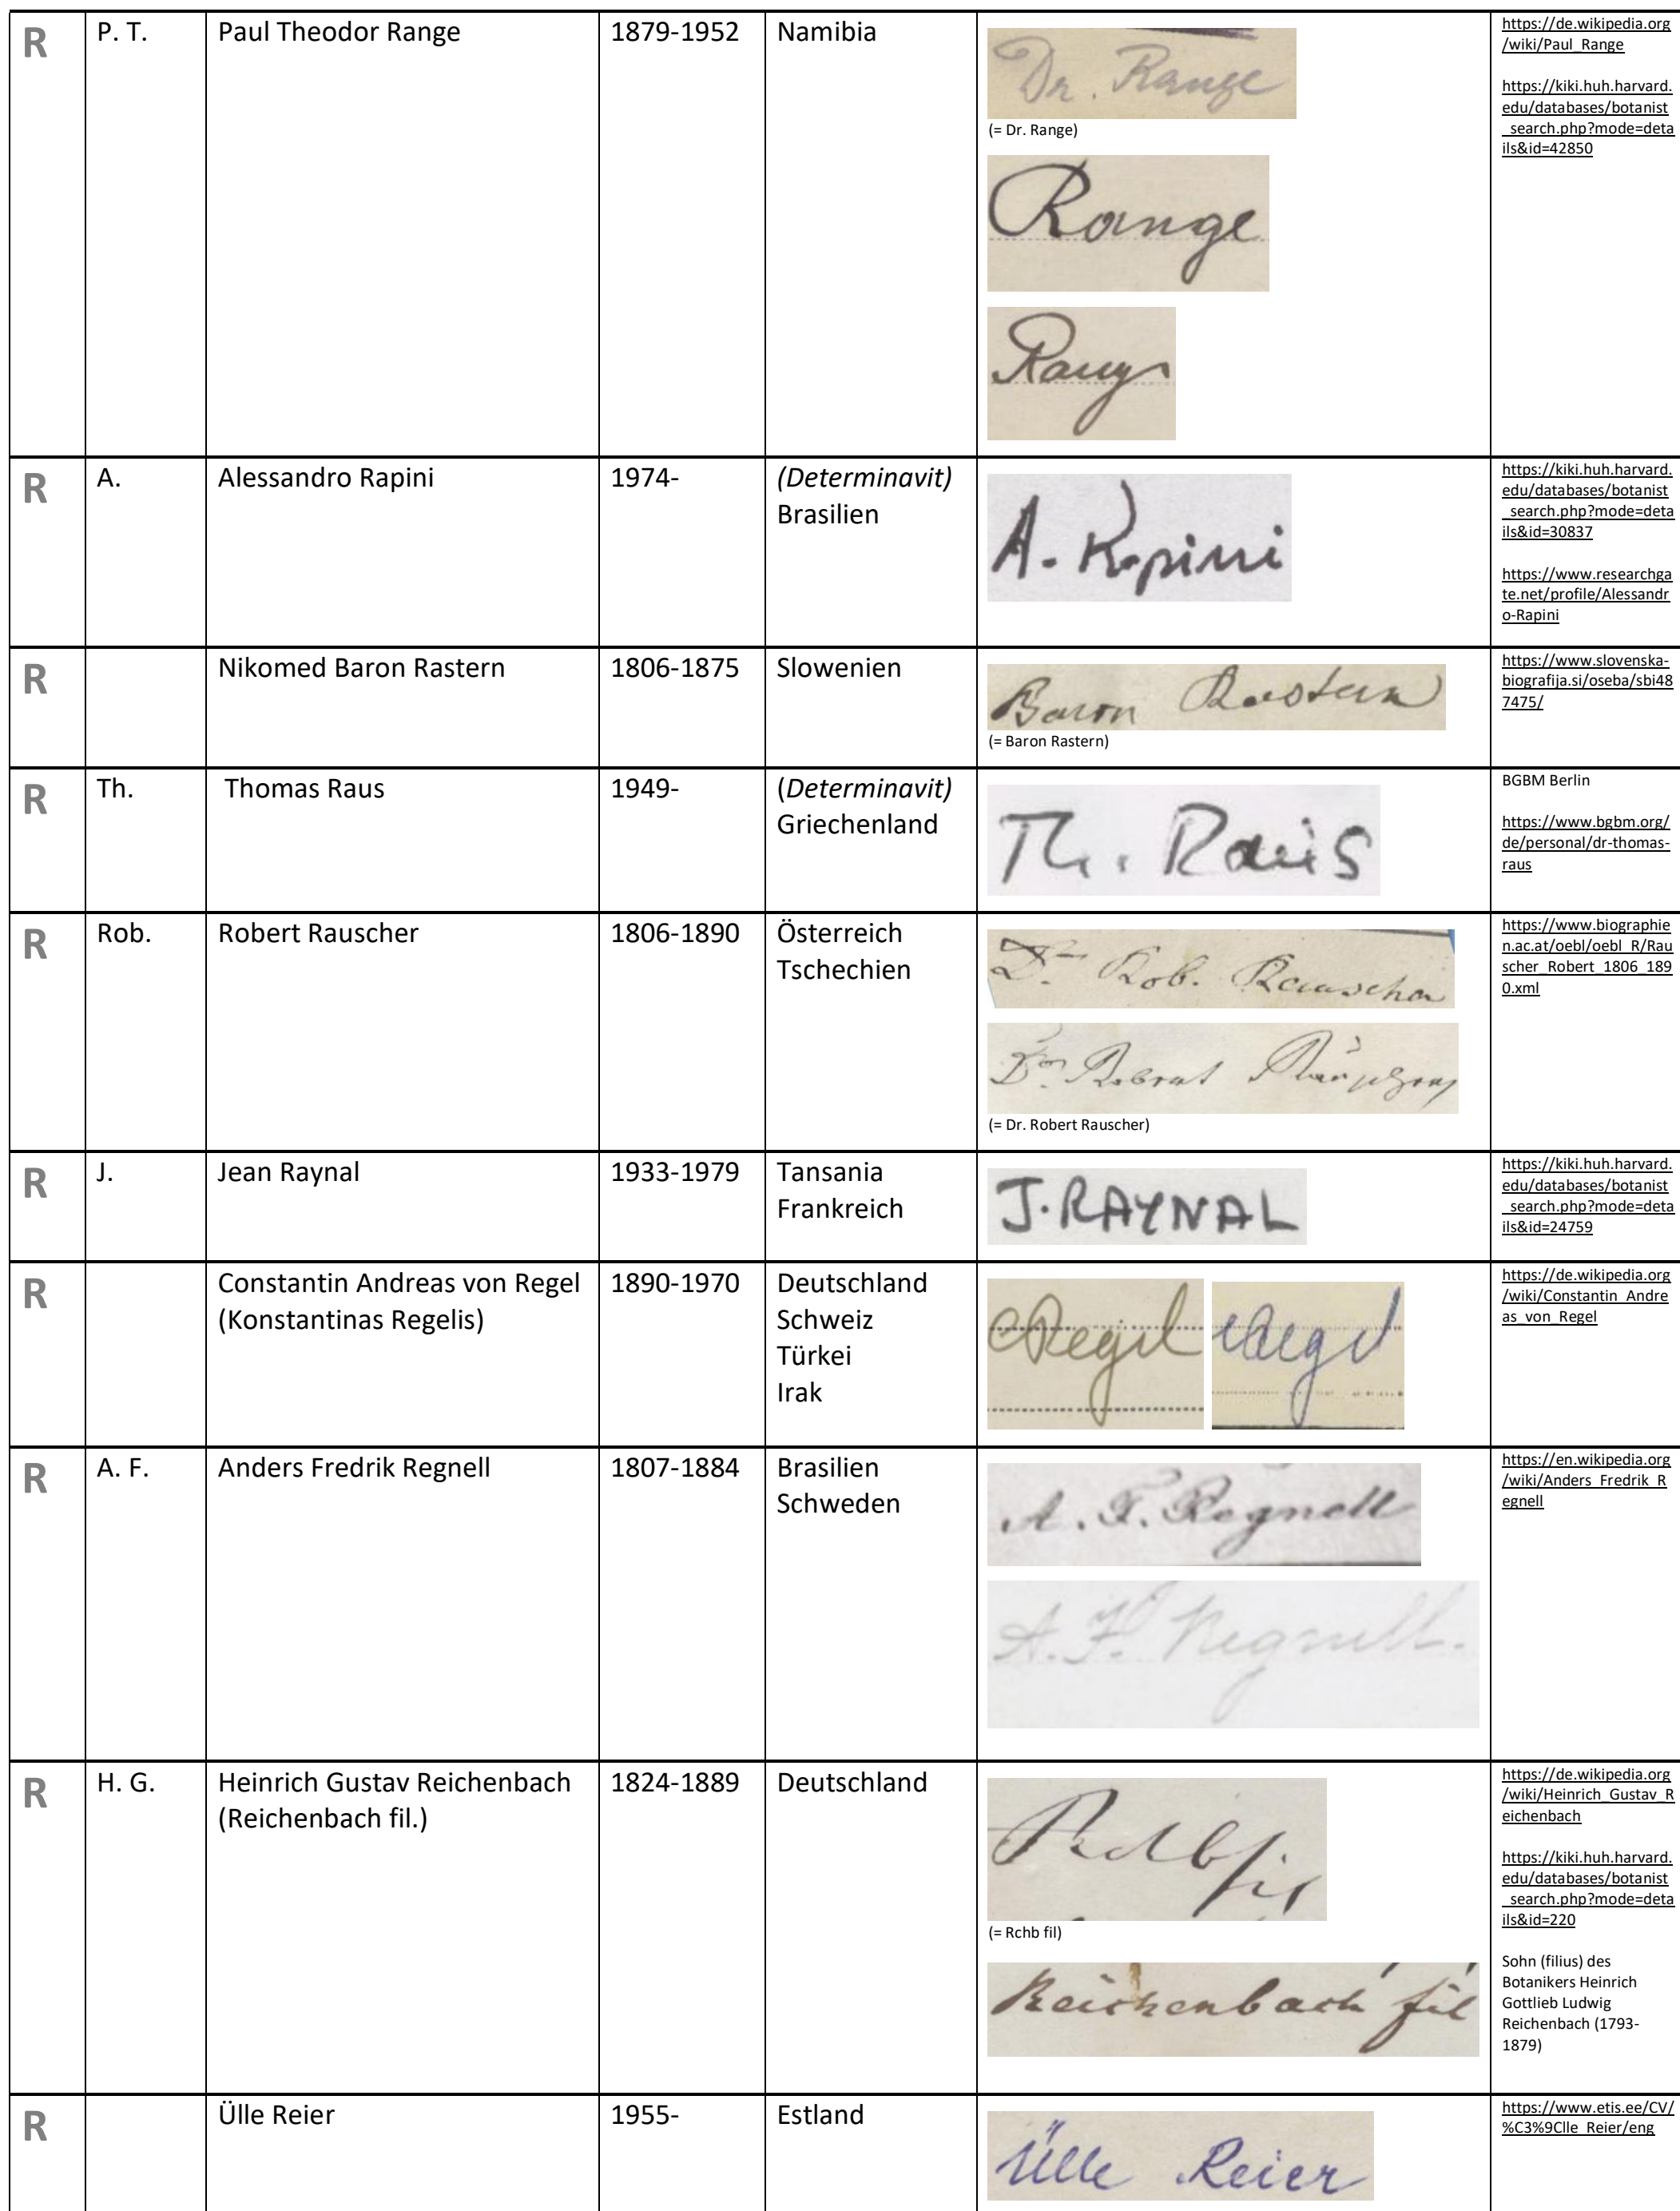 R P. T. Paul Theodor Range 1879-1952 Namibia
Dr. Range
(= Dr. Range)
Range
Range
https://de.wikipedia.org
/wiki/Paul_Range
https://kiki.huh.harvard.
edu/databases/botanist
_search.php?mode=deta
ils&id=42850
R A. Alessandro Rapini 1974- (Determinavit)
Brasilien
A. Rapini
https://kiki.huh.harvard.
edu/databases/botanist
_search.php?mode=deta
ils&id=30837
https://www.researchga
te.net/profile/Alessandr
o-Rapini
R Nikomed Baron Rastern 1806-1875 Slowenien
Baron Rastern
(= Baron Rastern)
https://www.slovenska-
biografija.si/oseba/sbi48
7475/
R Th. Thomas Raus 1949- (Determinavit)
Griechenland
Th. Raus
BGBM Berlin
https://www.bgbm.org/
de/personal/dr-thomas-
raus
R Rob. Robert Rauscher 1806-1890 Österreich
Tschechien
Dr Rob. Rauscher
Dr Robert Rauscher
(= Dr. Robert Rauscher)
https://www.biographie
n.ac.at/oebl/oebl_R/Rau
scher_Robert_1806_189
0.xml
R J. Jean Raynal 1933-1979 Tansania
Frankreich
J. RAYNAL
https://kiki.huh.harvard.
edu/databases/botanist
_search.php?mode=deta
ils&id=24759
R Constantin Andreas von Regel 1890-1970 Deutschland
(Konstantinas Regelis) Schweiz
Türkei
Irak
CRegel CRegel
https://de.wikipedia.org
/wiki/Constantin_Andre
as_von_Regel
R A. F. Anders Fredrik Regnell 1807-1884 Brasilien
Schweden
A. F. Regnell
A. F. Regnell.
https://en.wikipedia.org
/wiki/Anders_Fredrik_R
egnell
R H. G. Heinrich Gustav Reichenbach 1824-1889 Deutschland
(Reichenbach fil.)
Rchb fil
(= Rchb fil)
Reichenbach fil
https://de.wikipedia.org
/wiki/Heinrich_Gustav_R
eichenbach
https://kiki.huh.harvard.
edu/databases/botanist
_search.php?mode=deta
ils&id=220
Sohn (filius) des
Botanikers Heinrich
Gottlieb Ludwig
Reichenbach (1793-
1879)
R Ülle Reier 1955- Estland
Ülle Reier
https://www.etis.ee/CV/
%C3%9Clle_Reier/eng